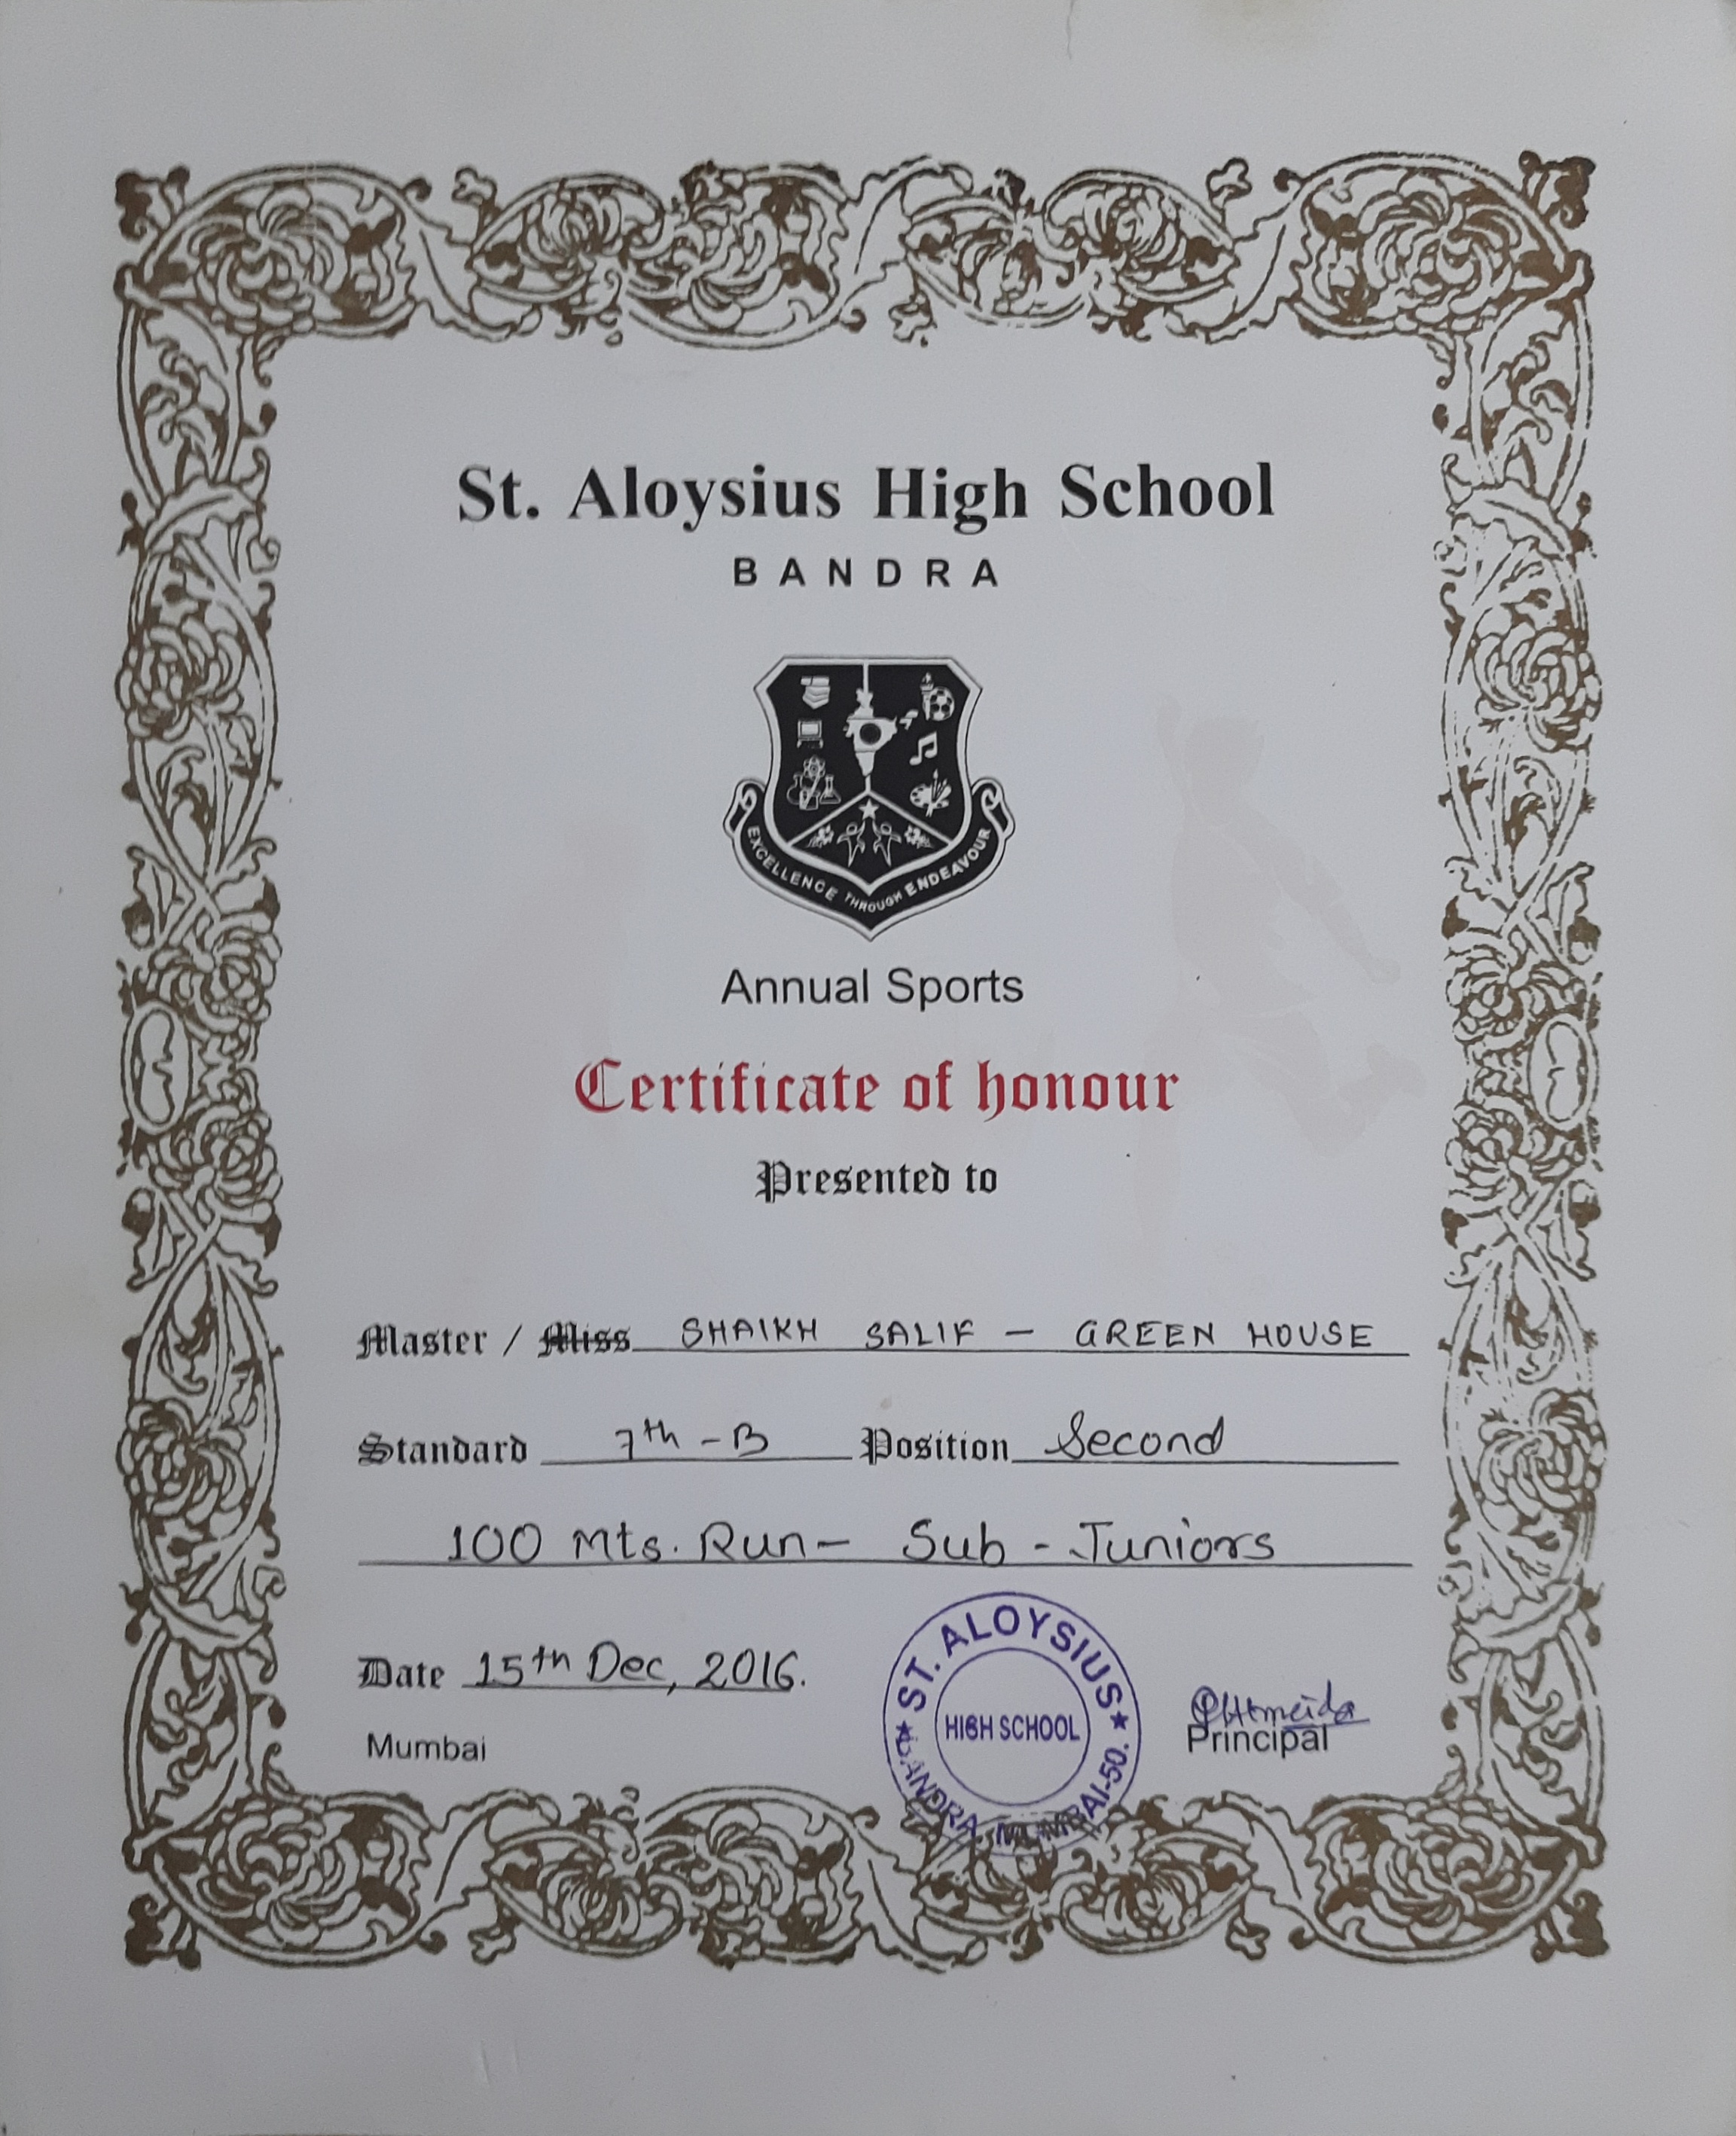 St. Aloysius High School
BANDRA
EXCELLENCE THROUGH ENDEAVOUR
Annual Sports
Certificate of honour
Presented to
Master / Miss SHAIKH SALIF - GREEN HOUSE
Standard 7th - B Position Second
100 Mts. Run - Sub - Juniors
Date 15th Dec, 2016.
Mumbai
ST. ALOYSIUS
HIGH SCHOOL
BANDRA, MUMBAI-50.
Principal